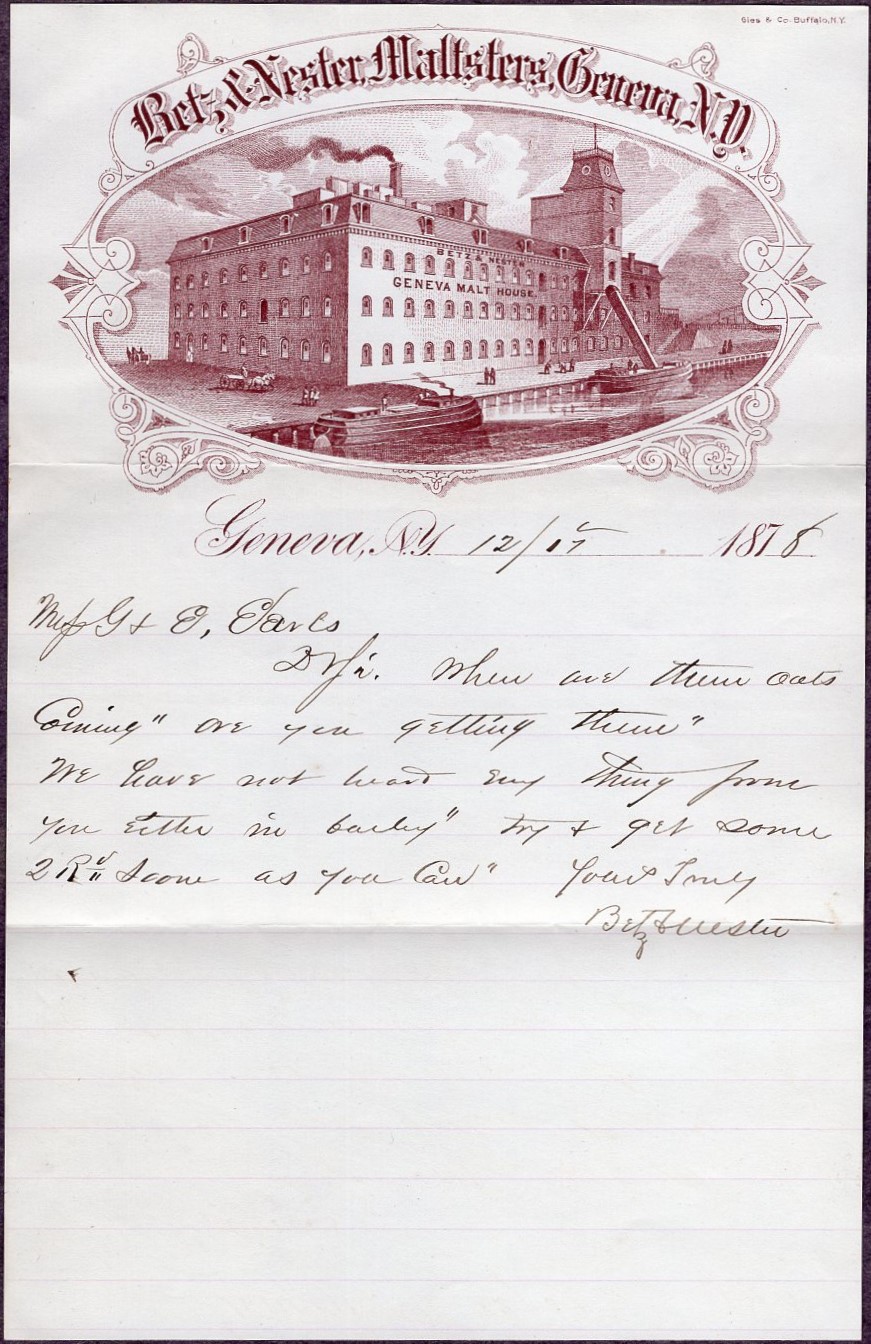 Gies & Co. Buffalo, N.Y.
Betz & Nester, Maltsters, Geneva, N.Y.
BETZ & NESTER
GENEVA MALT HOUSE.
Geneva, N.Y. 12/17 1878
Mess G & O, Earls
D Sir. When are them oats
Coming" are you getting them"
We have not heard eny thing from
you either in barley" try & get some
2 R" Soone as you Can" Yours Truly
Betz & Nester